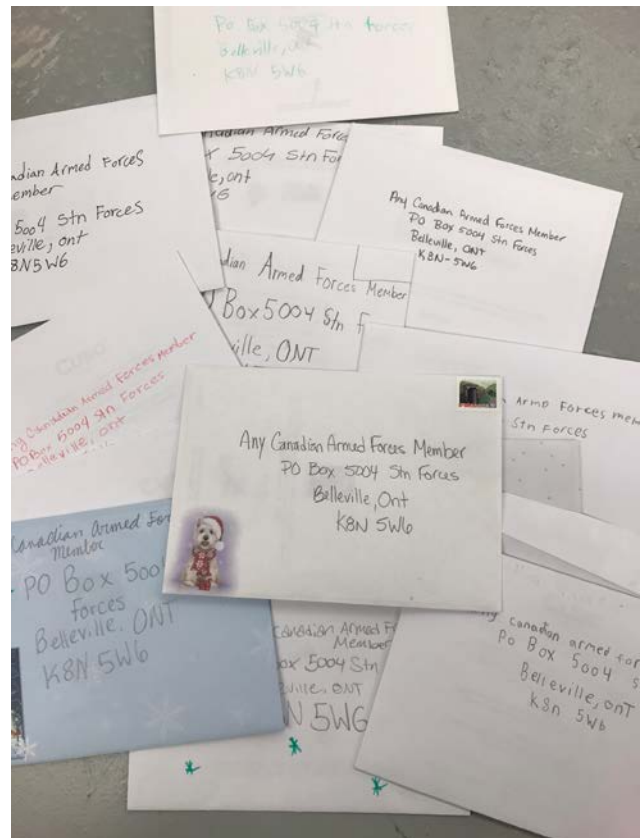 Po Box 5004 Stn Forces
Belleville, ont
K8N 5W6
nadian Armed Force
ember
5004 Stn Forces
eville, ont
8N5W6
nadian Armed Forc
x 5004 Stn For
e, ont
Any Canadian Armed Forces Member
PO Box 5004 Stn Forces
Belleville, ONT
K8N-5W6
dian Armed Forces Member
Box 5004 Stn F
ville, ONT
ny Canadian Armed Forces member
PO Box 5004 Stn Forces
elleville, ont
Armd Forces mem
Stn Forces
Any Canadian Armed Forces Member
PO Box 5004 Stn Forces
Belleville, Ont
K8N 5W6
Canadian Armed For
Member
PO Box 500
Forces
Belleville, ONT
K8N 5W6
Canadian Armed F
Member
ox 5004 Stn
eville, ONT
N 5W6
ny Canadian armed for
Po Box 5004 s
Belleville, onT
K8n 5w6